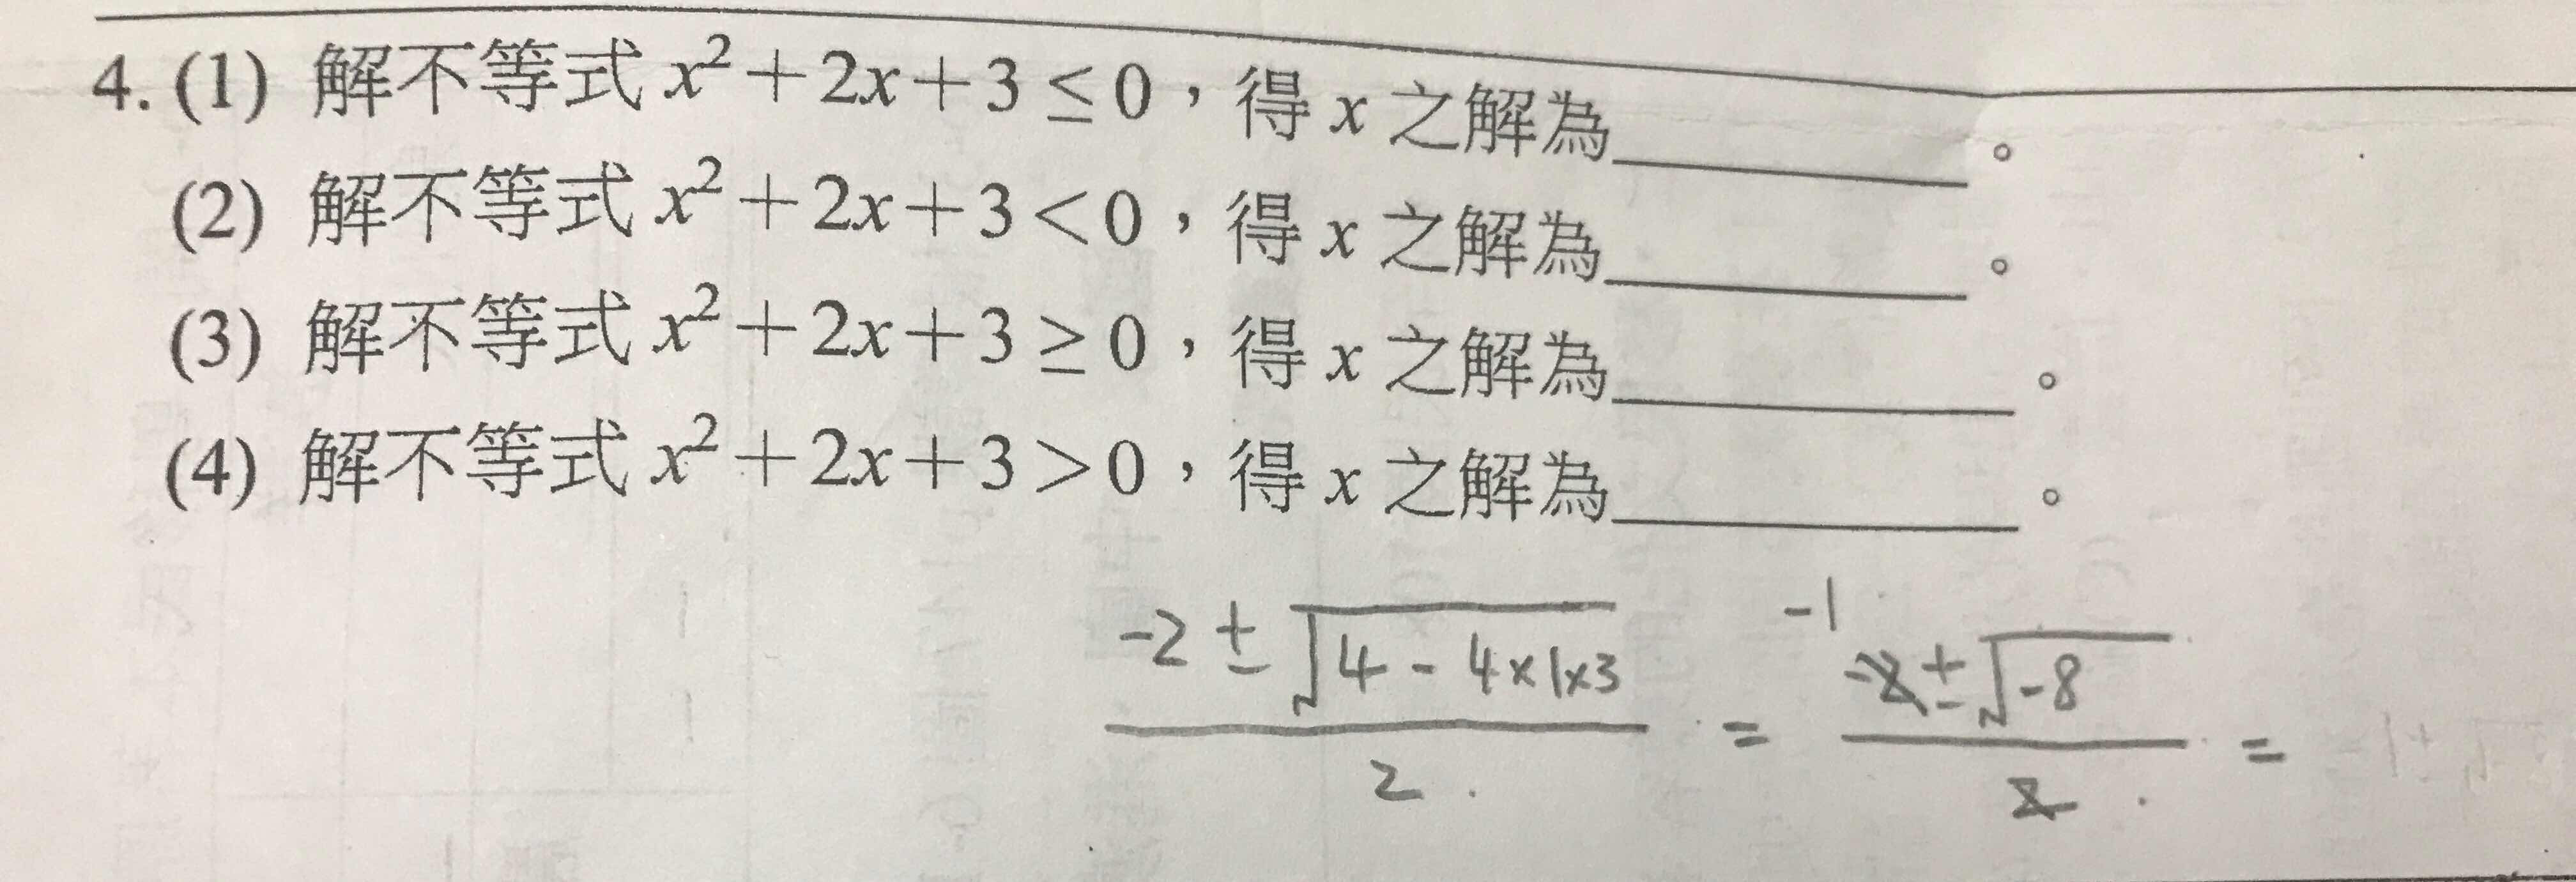 4. (1) 解不等式 x²+2x+3≤0，得 x 之解為________。
(2) 解不等式 x²+2x+3<0，得 x 之解為________。
(3) 解不等式 x²+2x+3≥0，得 x 之解為________。
(4) 解不等式 x²+2x+3>0，得 x 之解為________。
(-2±√(4-4×1×3))/2 = -1 (-2±√-8)/2 =